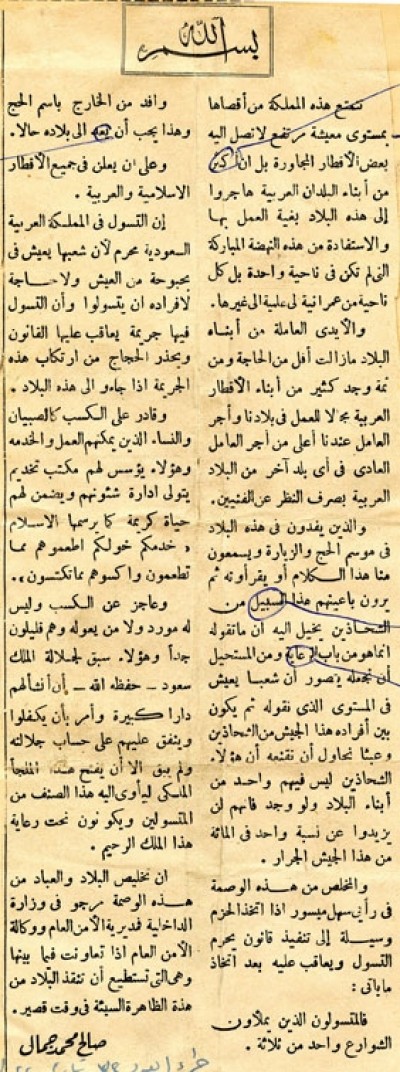 بسم الله
تتمتع هذه المملكة من أقصاها
بمستوى معيشة مرتفع لا تصل اليه
بعض الأقطار المجاورة بل ان
من أبناء البلدان العربية هاجروا
إلى هذه البلاد بغية العمل بها
والاستفادة من هذه النهضة المباركة
التى لم تكن فى ناحية واحدة بل كل
ناحية من عمرانية الى علمية الى غيرها.
والأيدى العاملة من أبناء
البلاد مازالت أقل من الحاجة ومن
ثمة وجد كثير من أبناء الأقطار
العربية مجالا للعمل فى بلادنا وأجر
العامل عندنا أعلى من أجر العامل
العادى فى أى بلد آخر من البلاد
العربية بصرف النظر عن الفنيين.
والذين يفدون فى هذه البلاد
فى موسم الحج والزيارة ويسمعون
منا هذا الكلام أو يقرأونه ثم
يرون باعينهم هذا السبيل من
الشحاذين يخيل اليه ان ماتقوله
انما هو من باب ومن المستحيل
أن نجعله يتصور أن شعبا يعيش
فى المستوى الذى نقوله ثم يكون
بين أفراده هذا الجيش من الشحاذين
وعبثا نحاول أن نقنعه أن هؤلاء
الشحاذين ليس فيهم واحد من
أبناء البلاد ولو وجد فانهم لن
يزيدوا عن نسبة واحد فى المائة
من هذا الجيش الجرار .
والمخلص من هذه الوصمة
فى رأيى سهل ميسور اذا اتخذ الحزم
وسيلة إلى تنفيذ قانون يحرم
التسول ويعاقب عليه بعد اتخاذ
ماياتى :
فالمتسولون الذين يملأون
الشوارع واحد من ثلاثة .
وافد من الخارج باسم الحج
وهذا يجب أن يعاد الى بلاده حالا.
وعلى ان يعلن فى جميع الأقطار
الاسلامية والعربية .
إن التسول فى المملكة العربية
السعودية محرم لأن شعبها يعيش فى
بحبوحة من العيش ولا حاجة
لافراده ان يتسولوا وأن التسول
فيها جريمة يعاقب عليها القانون
ويحذر الحجاج من ارتكاب هذه
الجريمة اذا جاءو الى هذه البلاد .
وقادر على الكسب كالصبيان
والنساء الذين يمكنهم العمل والخدمه
وهؤلاء يؤسس لهم مكتب تخديم
يتولى ادارة شئونهم ويضمن لهم
حياة كريمة كما يرسمها الاسلام
« خدمكم خولكم اطعموهم مما
تطعمون واكسوهم مما تكتسون ».
وعاجز عن الكسب وليس
له مورد ولا من يعوله وهم قليلون
جداً وهؤلاء سبق لجلالة الملك
سعود - حفظه الله - أن أنشأ لهم
دارا كبيرة وأمر بأن يكفلوا
وينفق عليهم على حساب جلالته
ولم يبق الا أن يفتح هذا الملجأ
الملكى ليأوى اليه هذا الصنف من
المتسولين ويكونون تحت رعاية
هذا الملك الرحيم .
ان تخليص البلاد والعباد من
هذه الوصمة نرجو فى وزارة
الداخلية فمديرية الأمن العام ووكالة
الأمن العام اذا تعاونت فيما بينها
وهى التى تستطيع أن تنقذ البلاد من
هذه الظاهرة السيئة فى وقت قصير.
صالح محمد جمال